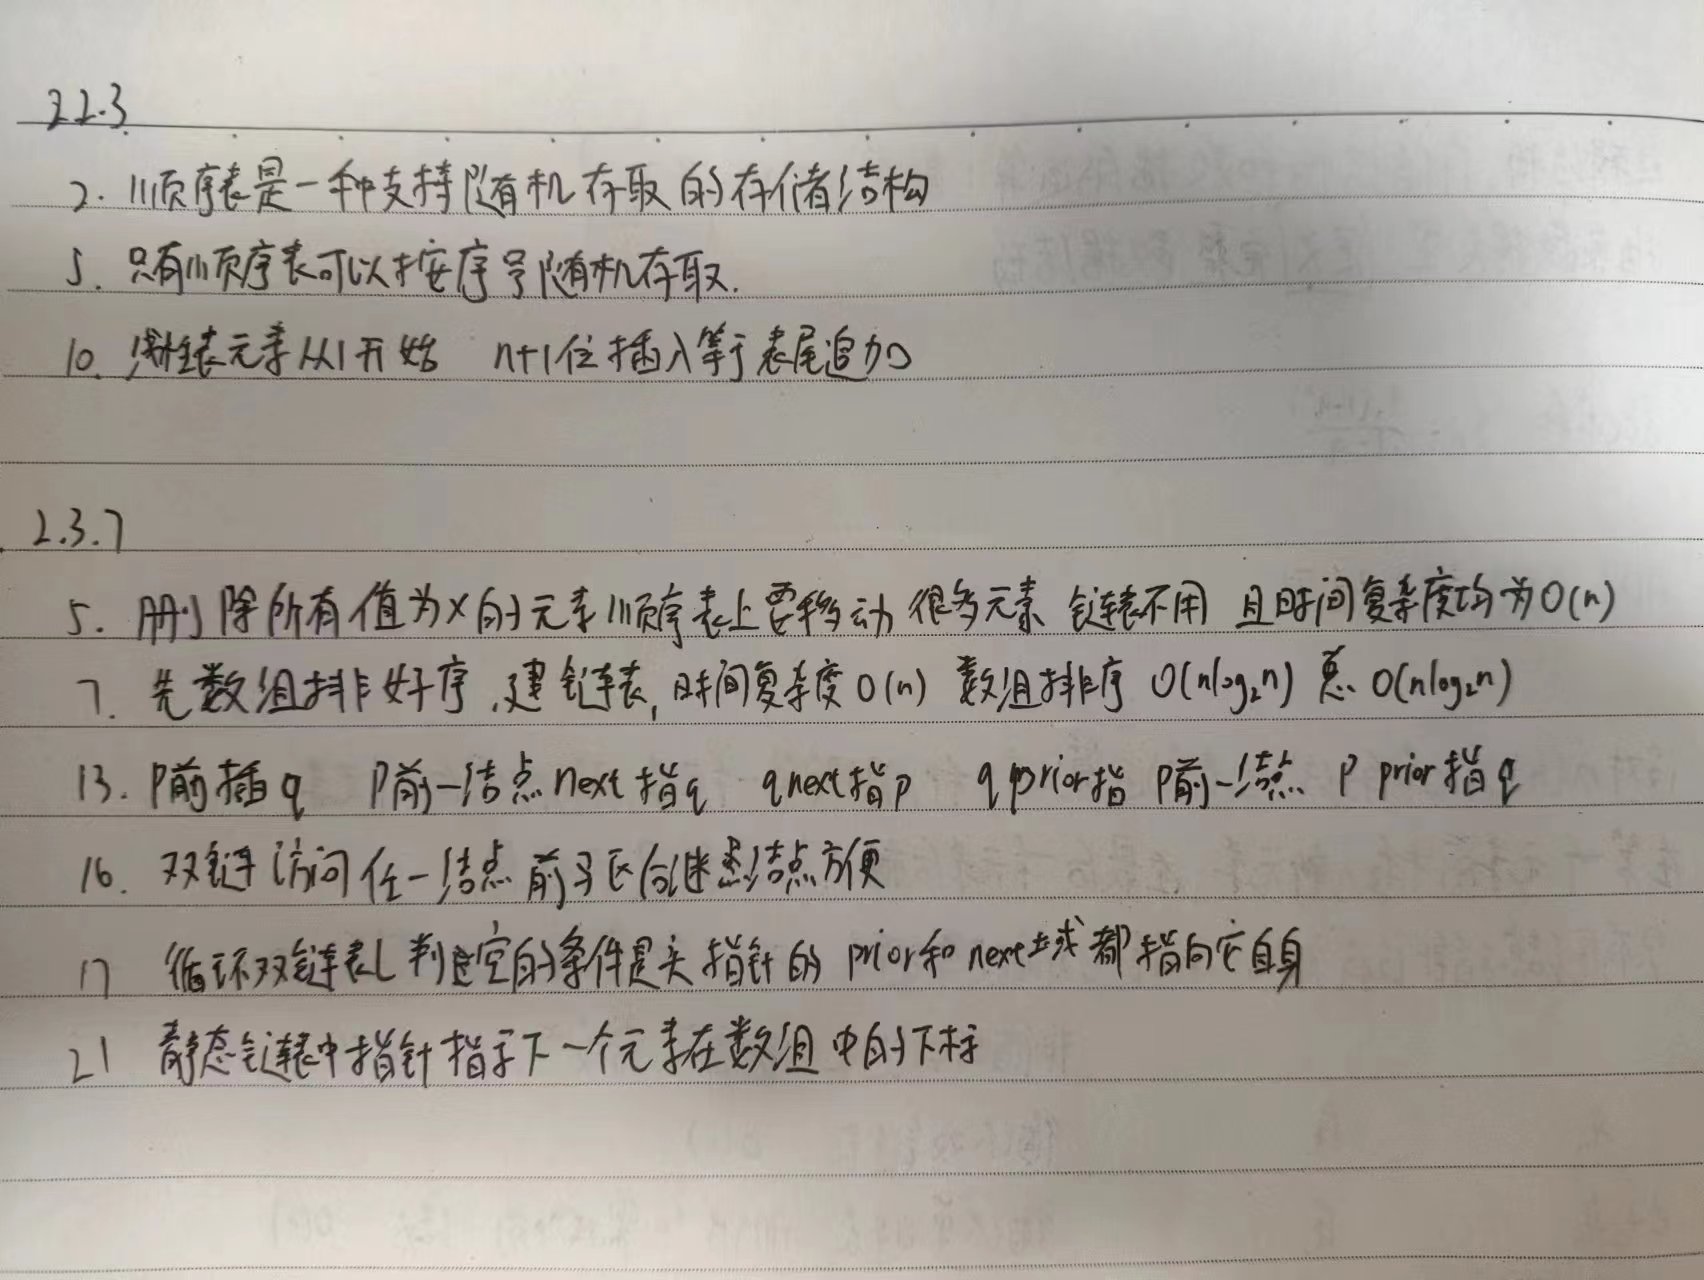 2.2.3
2. 顺序表是一种支持随机存取的存储结构
5. 只有顺序表可以按序号随机存取.
10. 线性表元素从1开始 n+1位插入等于表尾追加
2.3.7
5. 删除所有值为x的元素顺序表上要移动很多元素 链表不用 且时间复杂度均为O(n)
7. 先数组排好序,建链表,时间复杂度O(n) 数组排序 O(nlog₂n) 总 O(nlog₂n)
13. P前插q P前一结点next指q q next指p q prior指 P前一结点 P prior指q
16. 双链访问任一结点前驱后继结点方便
17 循环双链表L判空的条件是头指针的 prior和next域都指向它自身
21 静态链表中指针指示下一个元素在数组中的下标